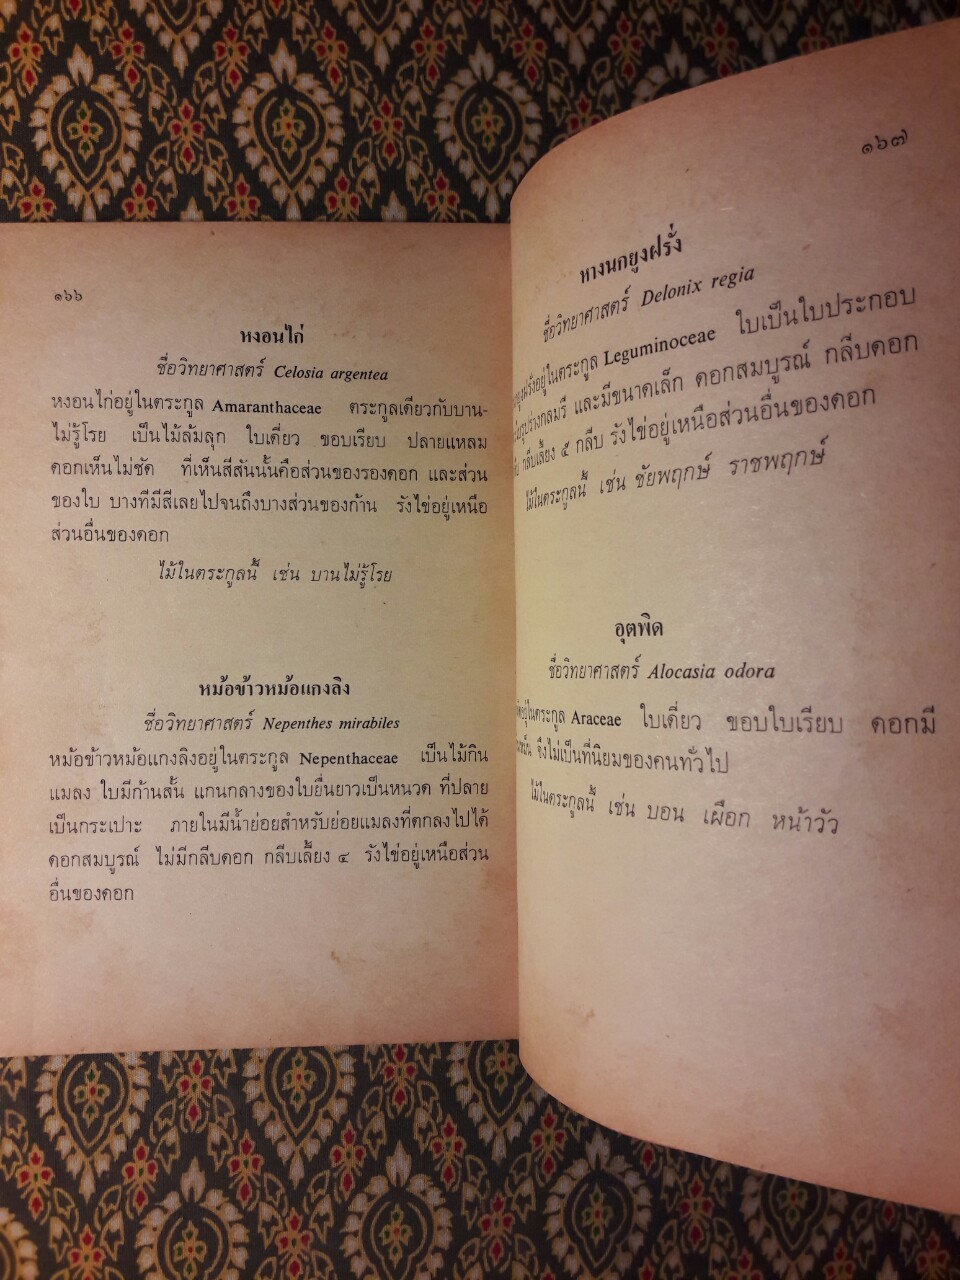 ๑๖๖
หงอนไก่
ชื่อวิทยาศาสตร์ Celosia argentea
หงอนไก่อยู่ในตระกูล Amaranthaceae ตระกูลเดียวกับบาน-
ไม่รู้โรย เป็นไม้ล้มลุก ใบเดี่ยว ขอบเรียบ ปลายแหลม
ดอกเห็นไม่ชัด ที่เห็นสีสันนั้นคือส่วนของรองดอก และส่วน
ของใบ บางทีมีสีเลยไปจนถึงบางส่วนของก้าน รังไข่อยู่เหนือ
ส่วนอื่นของดอก
ไม้ในตระกูลนี้ เช่น บานไม่รู้โรย
หม้อข้าวหม้อแกงลิง
ชื่อวิทยาศาสตร์ Nepenthes mirabiles
หม้อข้าวหม้อแกงลิงอยู่ในตระกูล Nepenthaceae เป็นไม้กิน
แมลง ใบมีก้านสั้น แกนกลางของใบยื่นยาวเป็นหนวด ที่ปลาย
เป็นกระเปาะ ภายในมีน้ำย่อยสำหรับย่อยแมลงที่ตกลงไปได้
ดอกสมบูรณ์ ไม่มีกลีบดอก กลีบเลี้ยง ๔ รังไข่อยู่เหนือส่วน
อื่นของดอก
๑๖๗
หางนกยูงฝรั่ง
ชื่อวิทยาศาสตร์ Delonix regia
อยู่ในตระกูล Leguminoceae ใบเป็นใบประกอบ
รูปร่างกลมรี และมีขนาดเล็ก ดอกสมบูรณ์ กลีบดอก
กลีบเลี้ยง ๕ กลีบ รังไข่อยู่เหนือส่วนอื่นของดอก
ไม้ในตระกูลนี้ เช่น ชัยพฤกษ์ ราชพฤกษ์
อุตพิด
ชื่อวิทยาศาสตร์ Alocasia odora
อยู่ในตระกูล Araceae ใบเดี่ยว ขอบใบเรียบ ดอกมี
จึงไม่เป็นที่นิยมของคนทั่วไป
ไม้ในตระกูลนี้ เช่น บอน เผือก หน้าวัว